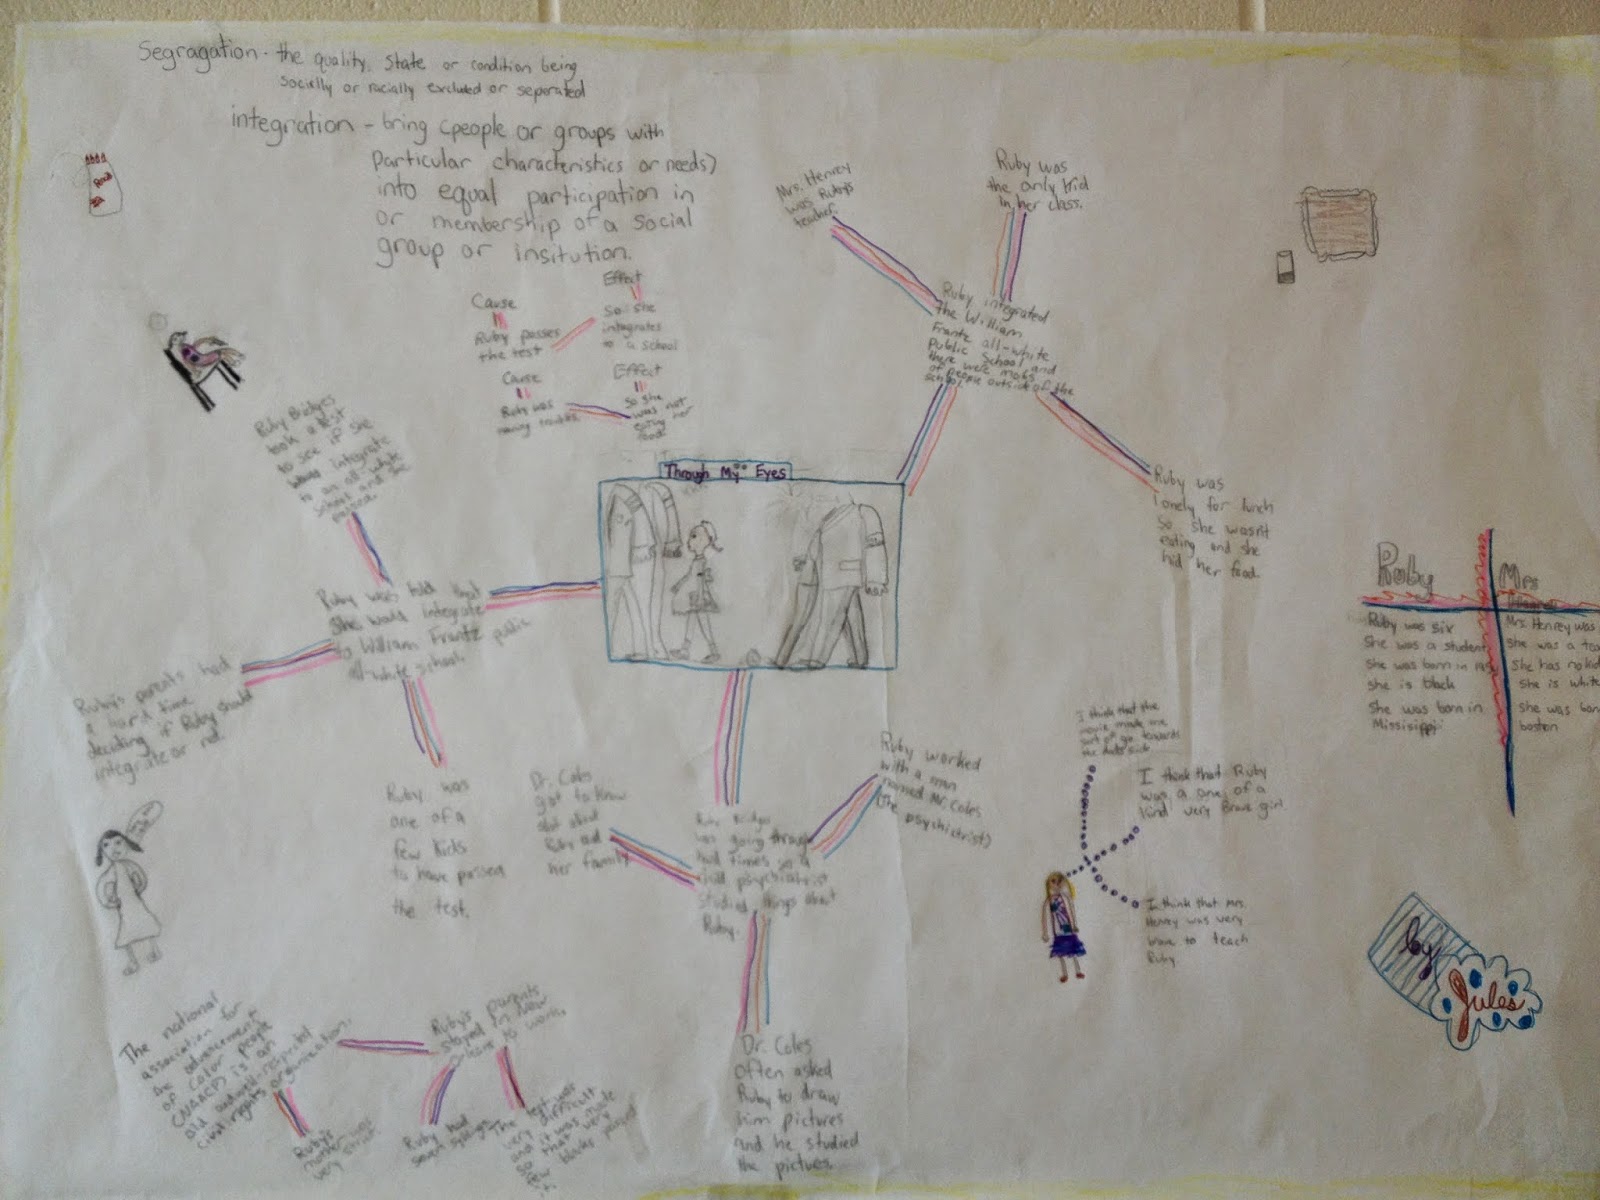 Segragation - the quality, state or condition being
socially or racially excluded or seperated
integration - bring (people or groups with
particular characteristics or needs)
into equal participation in
or membership of a social
group or insitution.
Cause
Ruby passes
the test
Effect
So she
integrates
to a school
Cause
Ruby was
having troubles
Effect
So she
was not
eating her
food.
Mrs. Henrey
was Ruby's
teacher.
Ruby was
the only kid
in her class.
Ruby integrated
the William
Frantz all-white
Public School and
there were mobs
of people outside of the
school.
Ruby was
lonely for lunch
So she wasn't
eating and she
hid her food.
Through My Eyes
Ruby Bridges
took a test
to see if she
would integrate
to an all-white
school and she
passed.
Ruby was told that
she would integrate
to William Frantz public
all-white school.
Ruby's parents had
a hard time
deciding if Ruby should
integrate or not.
Ruby was
one of a
few kids
to have passed
the test.
Dr. Coles
got to know
alot about
Ruby and
her family
Ruby Bridges
was going through
hard times so a
child psychiatrist
studied things about
Ruby.
Ruby worked
with a man
named Mr. Coles
(The psychiatrist)
Dr. Coles
often asked
Ruby to draw
him pictures
and he studied
the pictures.
Ruby
Ruby was six
She was a student
She was born in
She is black
She was born in
Missisippi
Mrs
Mrs. Henrey was
She was a
She has no
She is white
She was
boston
I think that the
movie made me
sort of go towards
the side
I think that Ruby
was a one of a
kind very Brave girl
I think that Mrs.
Henrey was very
brave to teach
Ruby
by
Jules
The national
association for
the advancement
of color people
(NAACP) is an
old and well-respected
civil rights organization.
Ruby's
mother was
very strict.
Ruby's parents
stayed in New
Orleans to work.
Ruby had
seven siblings.
The test was
very difficult
and it was made
so that very
few blacks passed